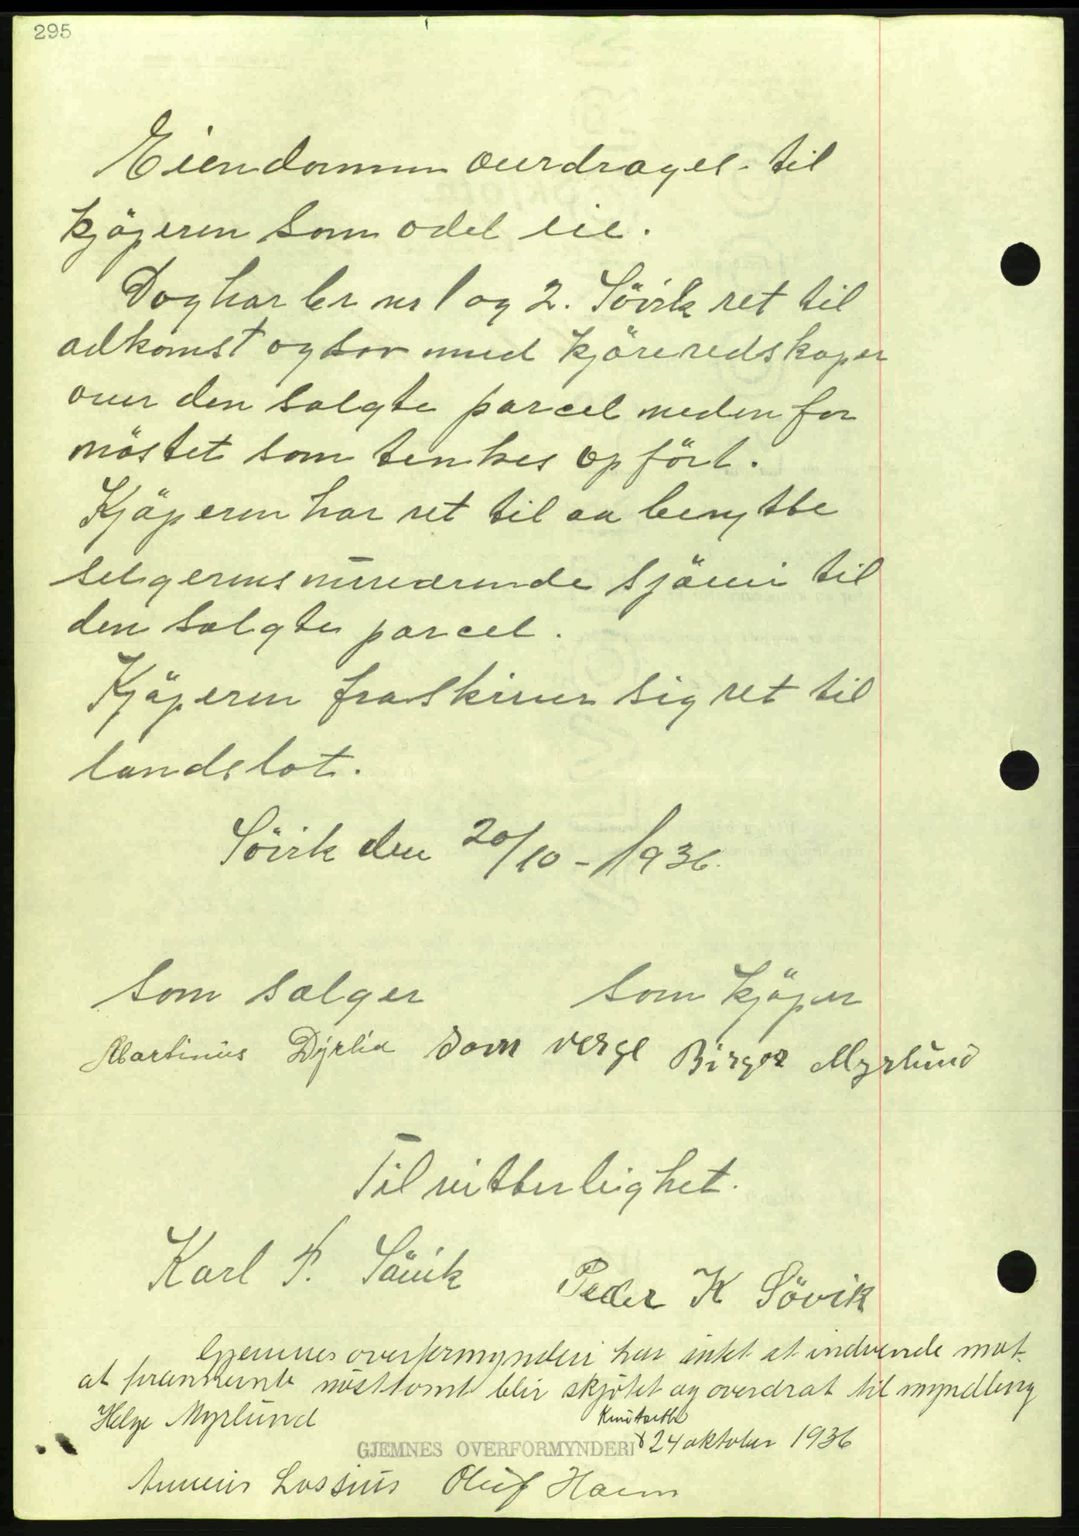 295
Eiendommen overdrages til
kjöperen som odel eie.
Dog har br nr 1 og 2. Sövik ret til
adkomst ogsaa med kjöreredskaper
over den solgte parcel nedenfor
nöstet som tenkes opfört.
Kjöperen har ret til aa benytte
selgerens nuværende sjövei til
den solgte parcel.
Kjöperen fraskriver sig ret til
landslot.
Sövik den 20/10 - 1936.
Som sælger Som kjöper
Martinus Dyrlia Som verge Birger Myrlund
Til vitterlighet.
Karl P. Sövik Peder K Sövik
Gjemnes overformynderi har intet at indvende mot
at fornevnte nösttomt blir skjötet og overdrat til myndling
Helge Myrlund
GJEMNES OVERFORMYNDERI 24 oktober 1936
Lossius Oluf Harm